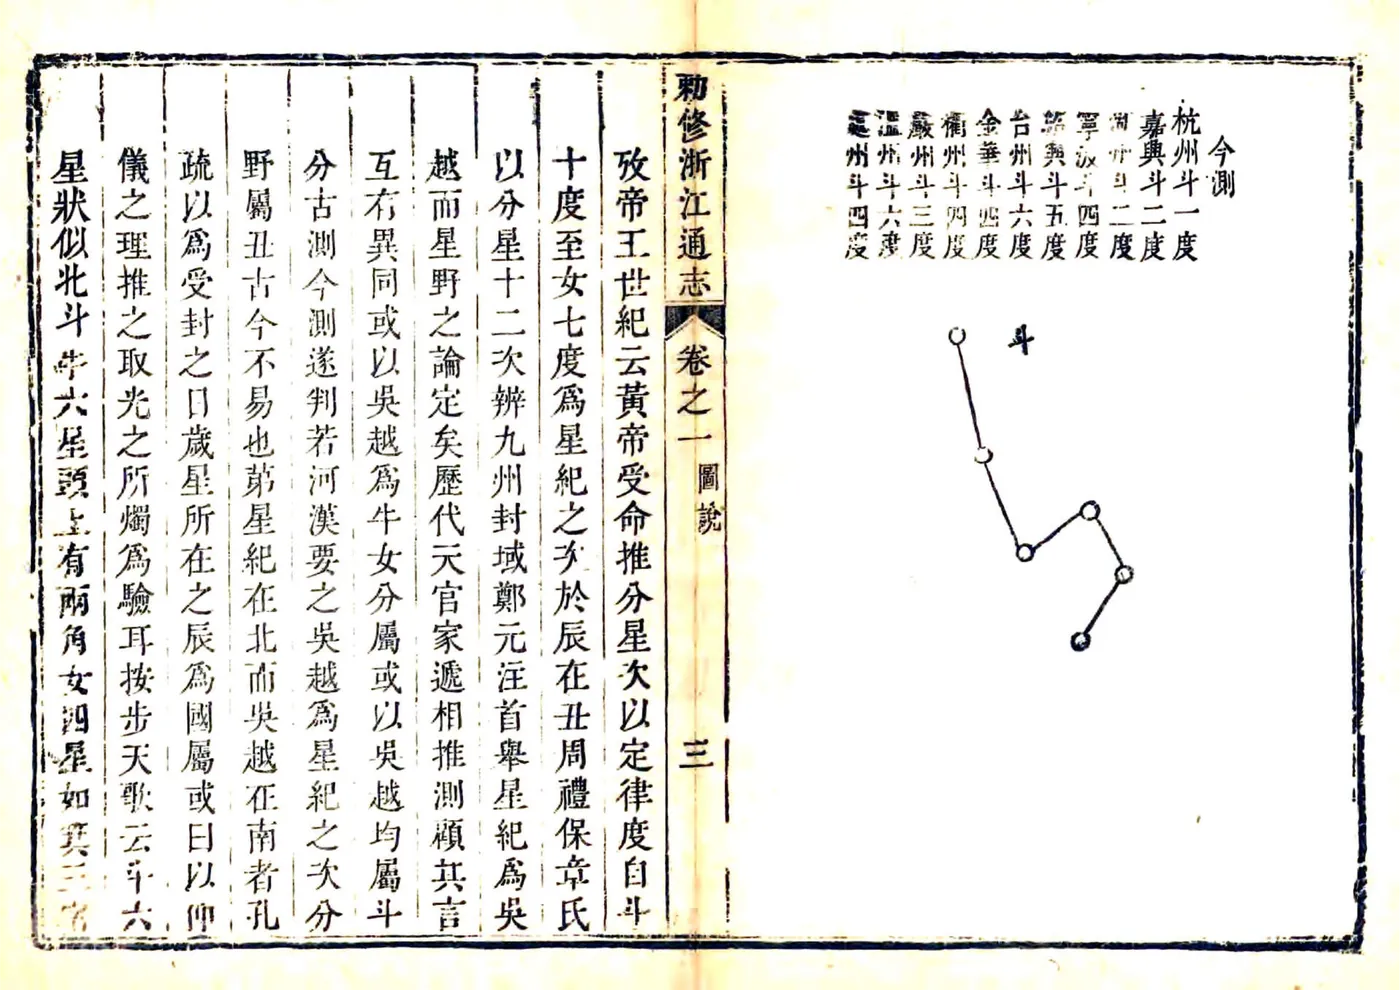 今測
杭州斗一度
嘉興斗二度
湖州斗二度
寧波斗四度
紹興斗五度
台州斗六度
金華斗四度
衢州斗四度
嚴州斗三度
溫州斗六度
處州斗四度
斗
勅修浙江通志
卷之一
圖說
三
攷帝王世紀云黃帝受命推分星次以定律度自斗
十度至女七度為星紀之次於辰在丑周禮保章氏
以分星十二次辨九州封域鄭元注首舉星紀為吳
越而星野之論定矣歷代天官家遞相推測顧其言
互有異同或以吳越為牛女分屬或以吳越均屬斗
分古測今測遂判若河漢要之吳越為星紀之次分
野屬丑古今不易也第星紀在北而吳越在南者孔
疏以為受封之日歲星所在之辰為國屬或曰以仰
儀之理推之取光之所燭為驗耳按步天歌云斗六
星狀似北斗牛六星頭上有兩角女四星如箕主